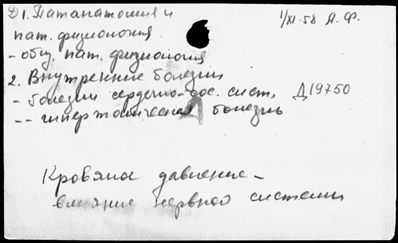 D 1. Патанатомия и
пат. физиология. 1/XI-58 А. Ф.
- общ. пат. физиология
2. Внутренние болезни
- болезни сердечно-сос. сист. Д19750
-- гипертоническая болезнь
Кровяное давление -
влияние нервной системы